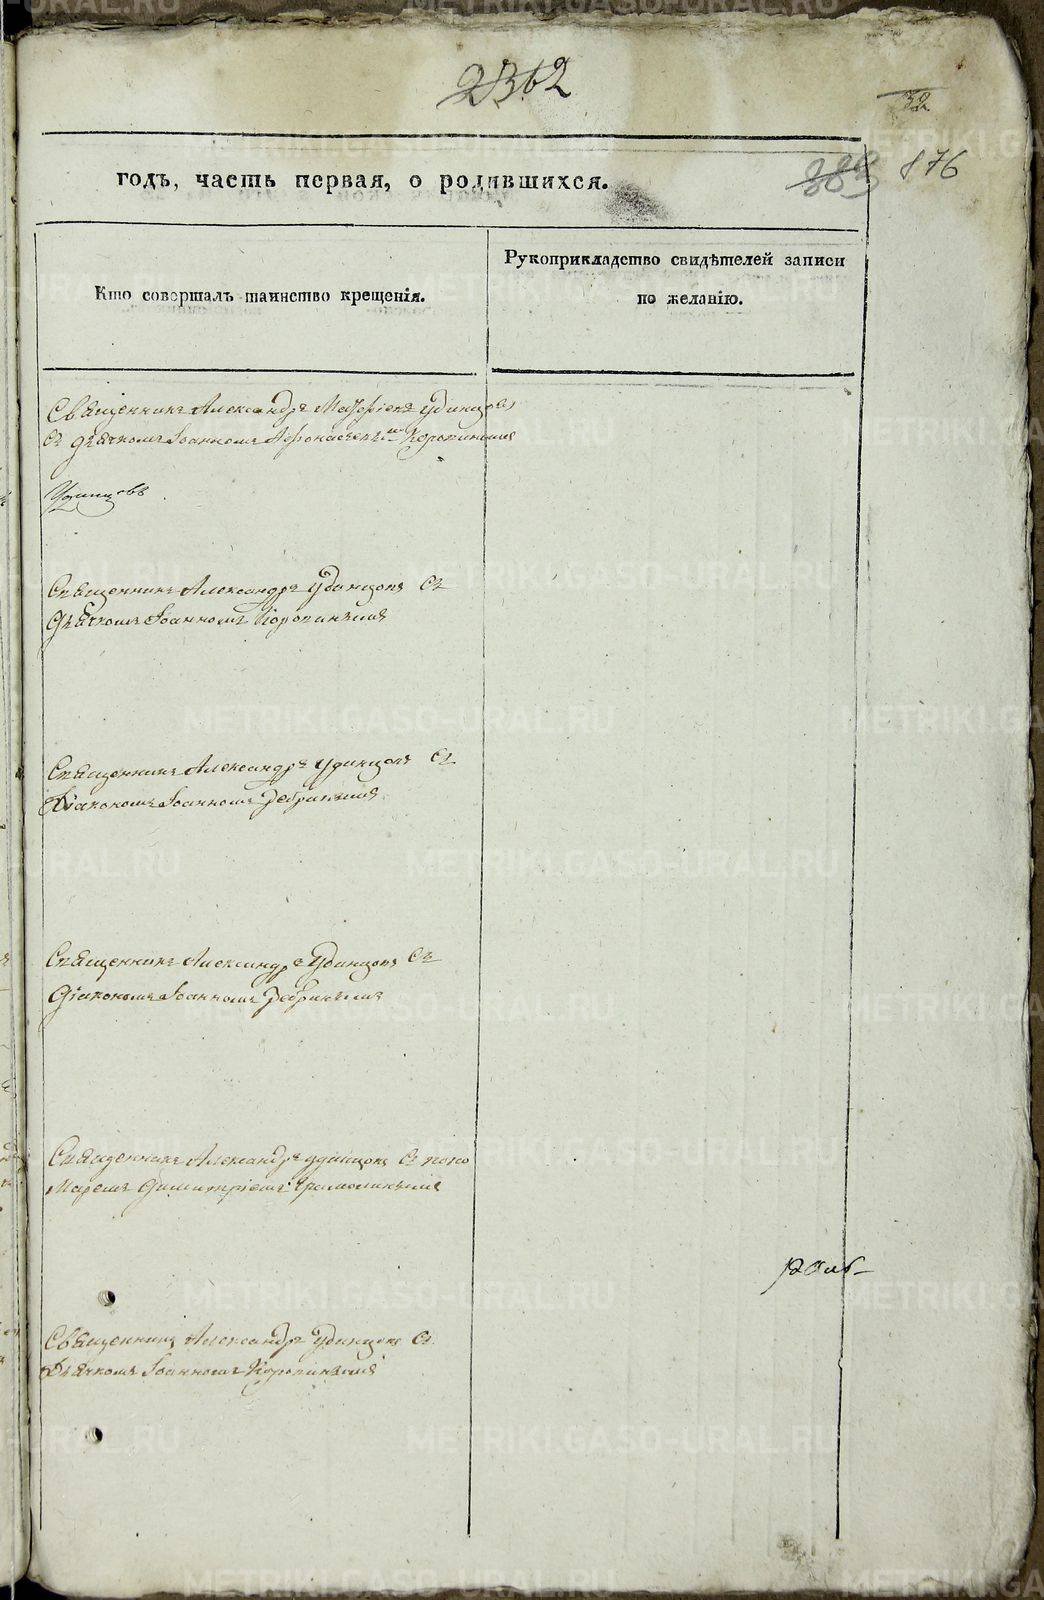 2362
32
годъ, часть первая, о родившихся.
383 876
Кто совершалъ таинство крещенія.
Рукоприкладство свидѣтелей записи
по желанію.
Священникъ Александръ Матфіевъ Удинцовъ
съ дьячкомъ Іоанномъ Афонасьевымъ Коропинымъ
Удинцовъ
Священникъ Александръ Удинцовъ съ
дьячкомъ Іоанномъ Коропинымъ
Священникъ Александръ Удинцовъ съ
Діакономъ Іоанномъ
Священникъ Александръ Удинцовъ съ
діакономъ Іоанномъ
Священникъ Александръ Удинцовъ съ поно
маремъ Димитріемъ
Священникъ Александръ Удинцовъ съ
Дьячкомъ Іоанномъ Коропинымъ
METRIKI.GASO-URAL.RU